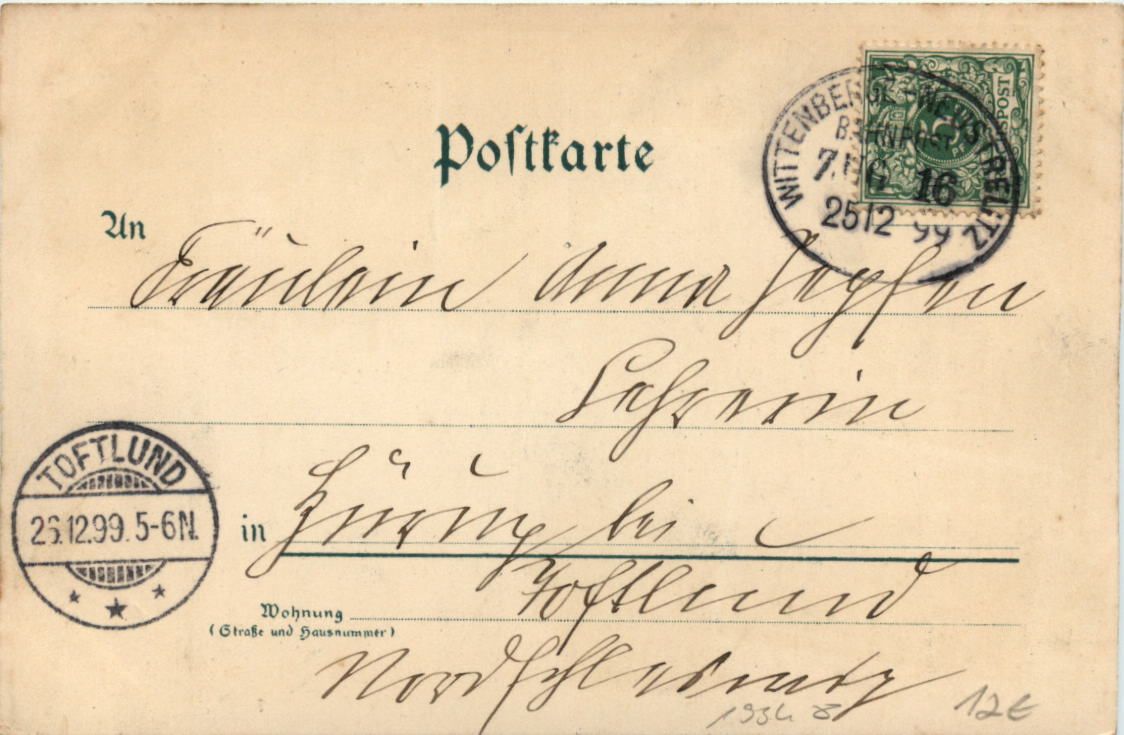 Postkarte
WITTENBERGE-NEUSTRELITZ
BAHNPOST
ZUG 16
25/12 99
5
An Fräulein Anna Jepsen
Lehrerin
TOFTLUND
26.12.99. 5-6N.
in Hürup bei
Toftlund
Wohnung
(Straße und Hausnummer)
Nordschleswig
12€